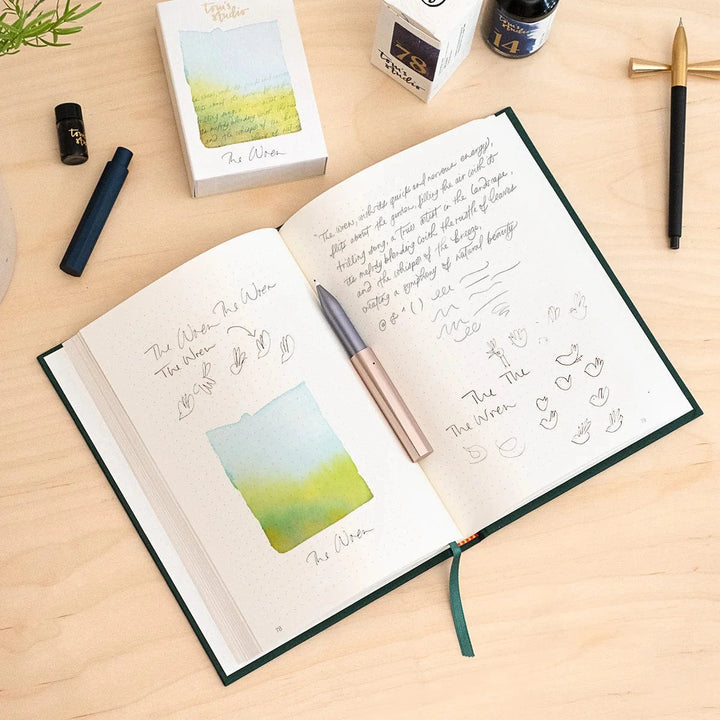 tom's
studio
The Wren
78
tom's
studio
14
tom's
studio
"The wren, with its quick and nervous energy,
flits about the garden, filling the air with its
trilling song, a true artist in the landscape,
its melody blending with the rustle of leaves
and the whisper of the breeze,
creating a symphony of natural beauty."
The Wren The Wren
The Wren
The Wren
78
The The
The Wren
79